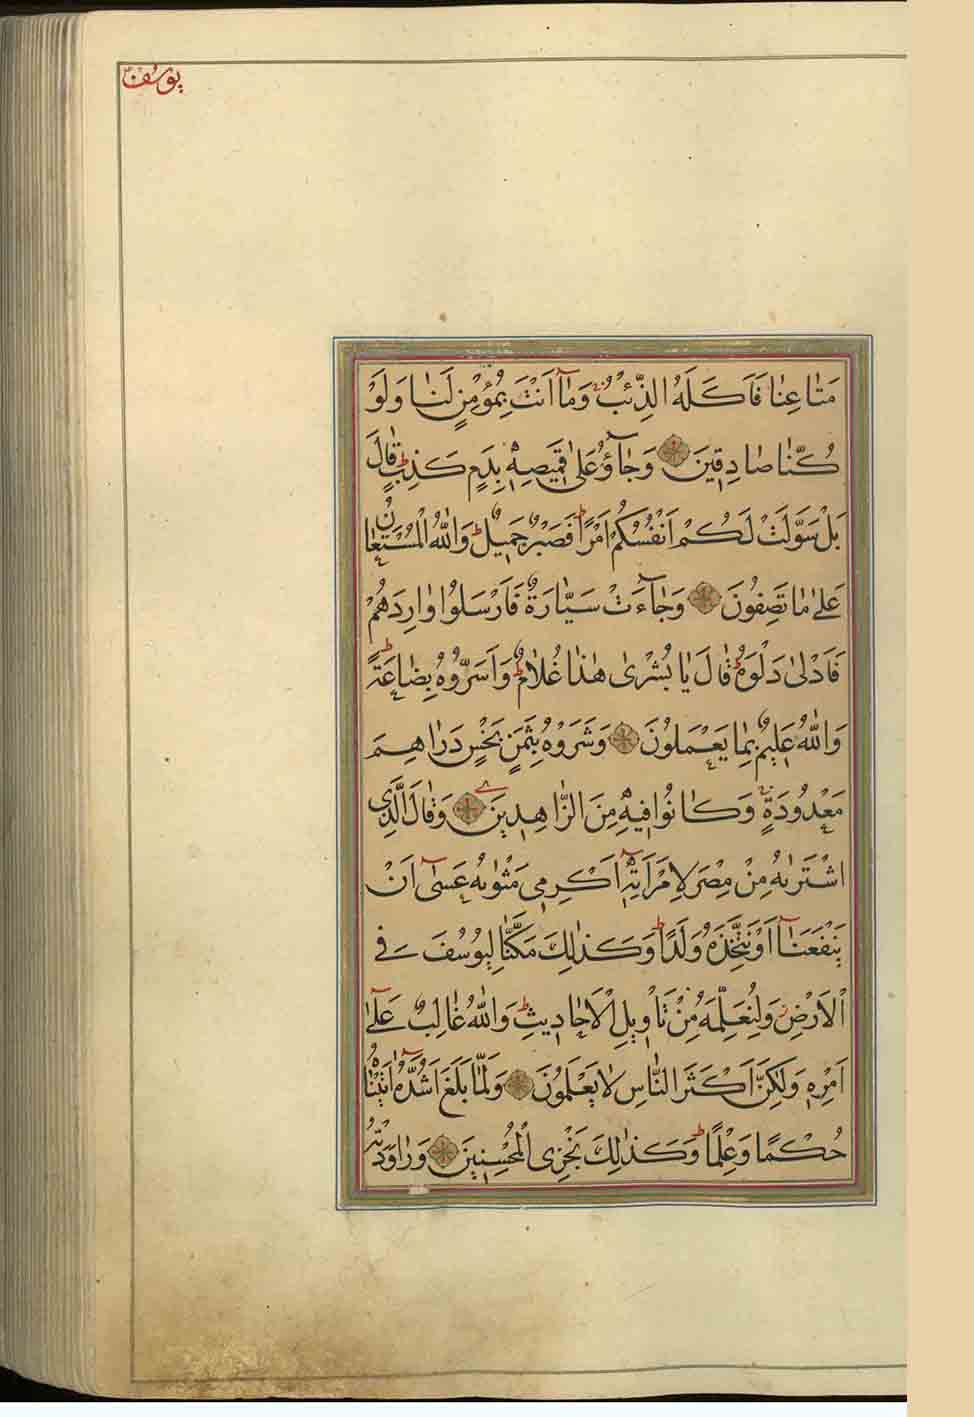 يوسف
مَتَاعِنَا فَاَكَلَهُ الذِّئْبُ وَمَآ اَنْتَ بِمُؤْمِنٍ لَنَا وَلَوْ
كُنَّا صَادِقِينَ وَجَآؤُ عَلٰى قَمِيصِهٖ بِدَمٍ كَذِبٍ قَالَ
بَلْ سَوَّلَتْ لَكُمْ اَنْفُسُكُمْ اَمْرًا فَصَبْرٌ جَمِيلٌ وَاللّٰهُ الْمُسْتَعَانُ
عَلٰى مَا تَصِفُونَ وَجَآءَتْ سَيَّارَةٌ فَاَرْسَلُوا وَارِدَهُمْ
فَاَدْلٰى دَلْوَهُ قَالَ يَا بُشْرٰى هٰذَا غُلَامٌ وَاَسَرُّوهُ بِضَاعَةً
وَاللّٰهُ عَلِيمٌ بِمَا يَعْمَلُونَ وَشَرَوْهُ بِثَمَنٍ بَخْسٍ دَرَاهِمَ
مَعْدُودَةٍ وَكَانُوا فِيهِ مِنَ الزَّاهِدِينَ وَقَالَ الَّذِى
اشْتَرٰيهُ مِنْ مِصْرَ لِامْرَاَتِهٖٓ اَكْرِمِى مَثْوٰيهُ عَسٰٓى اَنْ
يَنْفَعَنَآ اَوْ نَتَّخِذَهُ وَلَدًا وَكَذٰلِكَ مَكَّنَّا لِيُوسُفَ فِى
الْاَرْضِ وَلِنُعَلِّمَهُ مِنْ تَاْوِيلِ الْاَحَادِيثِ وَاللّٰهُ غَالِبٌ عَلٰٓى
اَمْرِهٖ وَلٰكِنَّ اَكْثَرَ النَّاسِ لَا يَعْلَمُونَ وَلَمَّا بَلَغَ اَشُدَّهُٓ اٰتَيْنَاهُ
حُكْمًا وَعِلْمًا وَكَذٰلِكَ نَجْزِى الْمُحْسِنِينَ وَرَاوَدَتْهُ